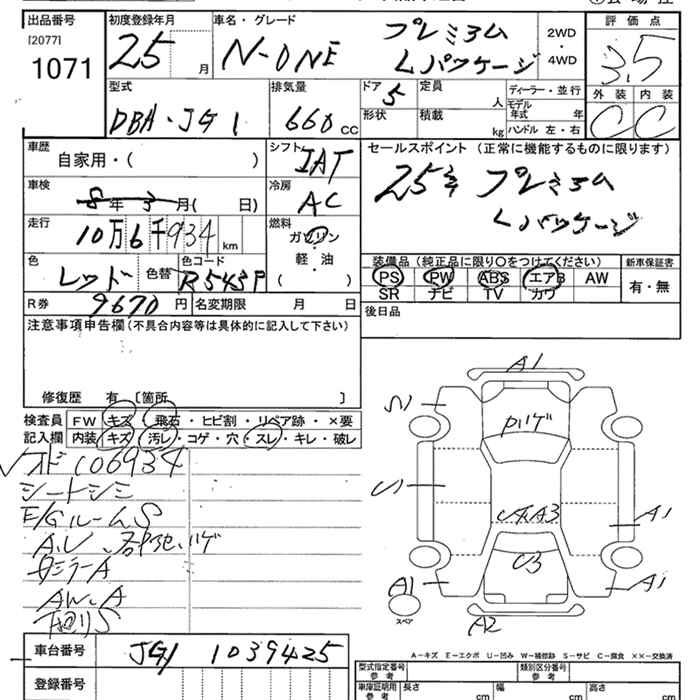 出品番号 初度登録年月 車名・グレード 評価点
[2077] 1071 25 月 N-ONE プレミアム Lパッケージ 2WD・4WD 3.5
型式 排気量 ドア形状 定員 ディーラー・並行 外装 内装
DBA・JG1 660 CC 5 人 モデル年式 年 C C
積載 kg ハンドル 左・右
車歴 自家用・( ) シフト IAT セールスポイント (正常に機能するものに限ります)
車検 8年3月( 日) 冷房 AC 25年 プレミアム
走行 10万6千934km 燃料 ガソリン・軽・油 ( ) Lパッケージ
色 レッド 色替 色コード R543P 装備品(純正品に限り○をつけてください) 新車保証書
PS PW ABS エアB AW 有・無
SR ナビ TV カワ
R券 9670円 名変期限 月 日 後日品
注意事項申告欄(不具合内容等は具体的に記入して下さい)
修復歴 有 [箇所 ]
検査員 FW キズ・飛石・ヒビ割・リペア跡・×要
記入欄 内装 キズ・汚レ・コゲ・穴・スレ・キレ・破レ
A1
ハゲ
A1
A1
A1
A2
スペア
シートシミ
E/GルームS
AW、A
下回りS
車台番号 JG1 1039425
A−キズ E−エクボ U−凹み W−補修跡 S−サビ C−腐食 ××−交換済
登録番号
型式指定番号 参考 類別区分番号 参考
車庫証明用 参考 長さ cm 幅 cm 高さ cm